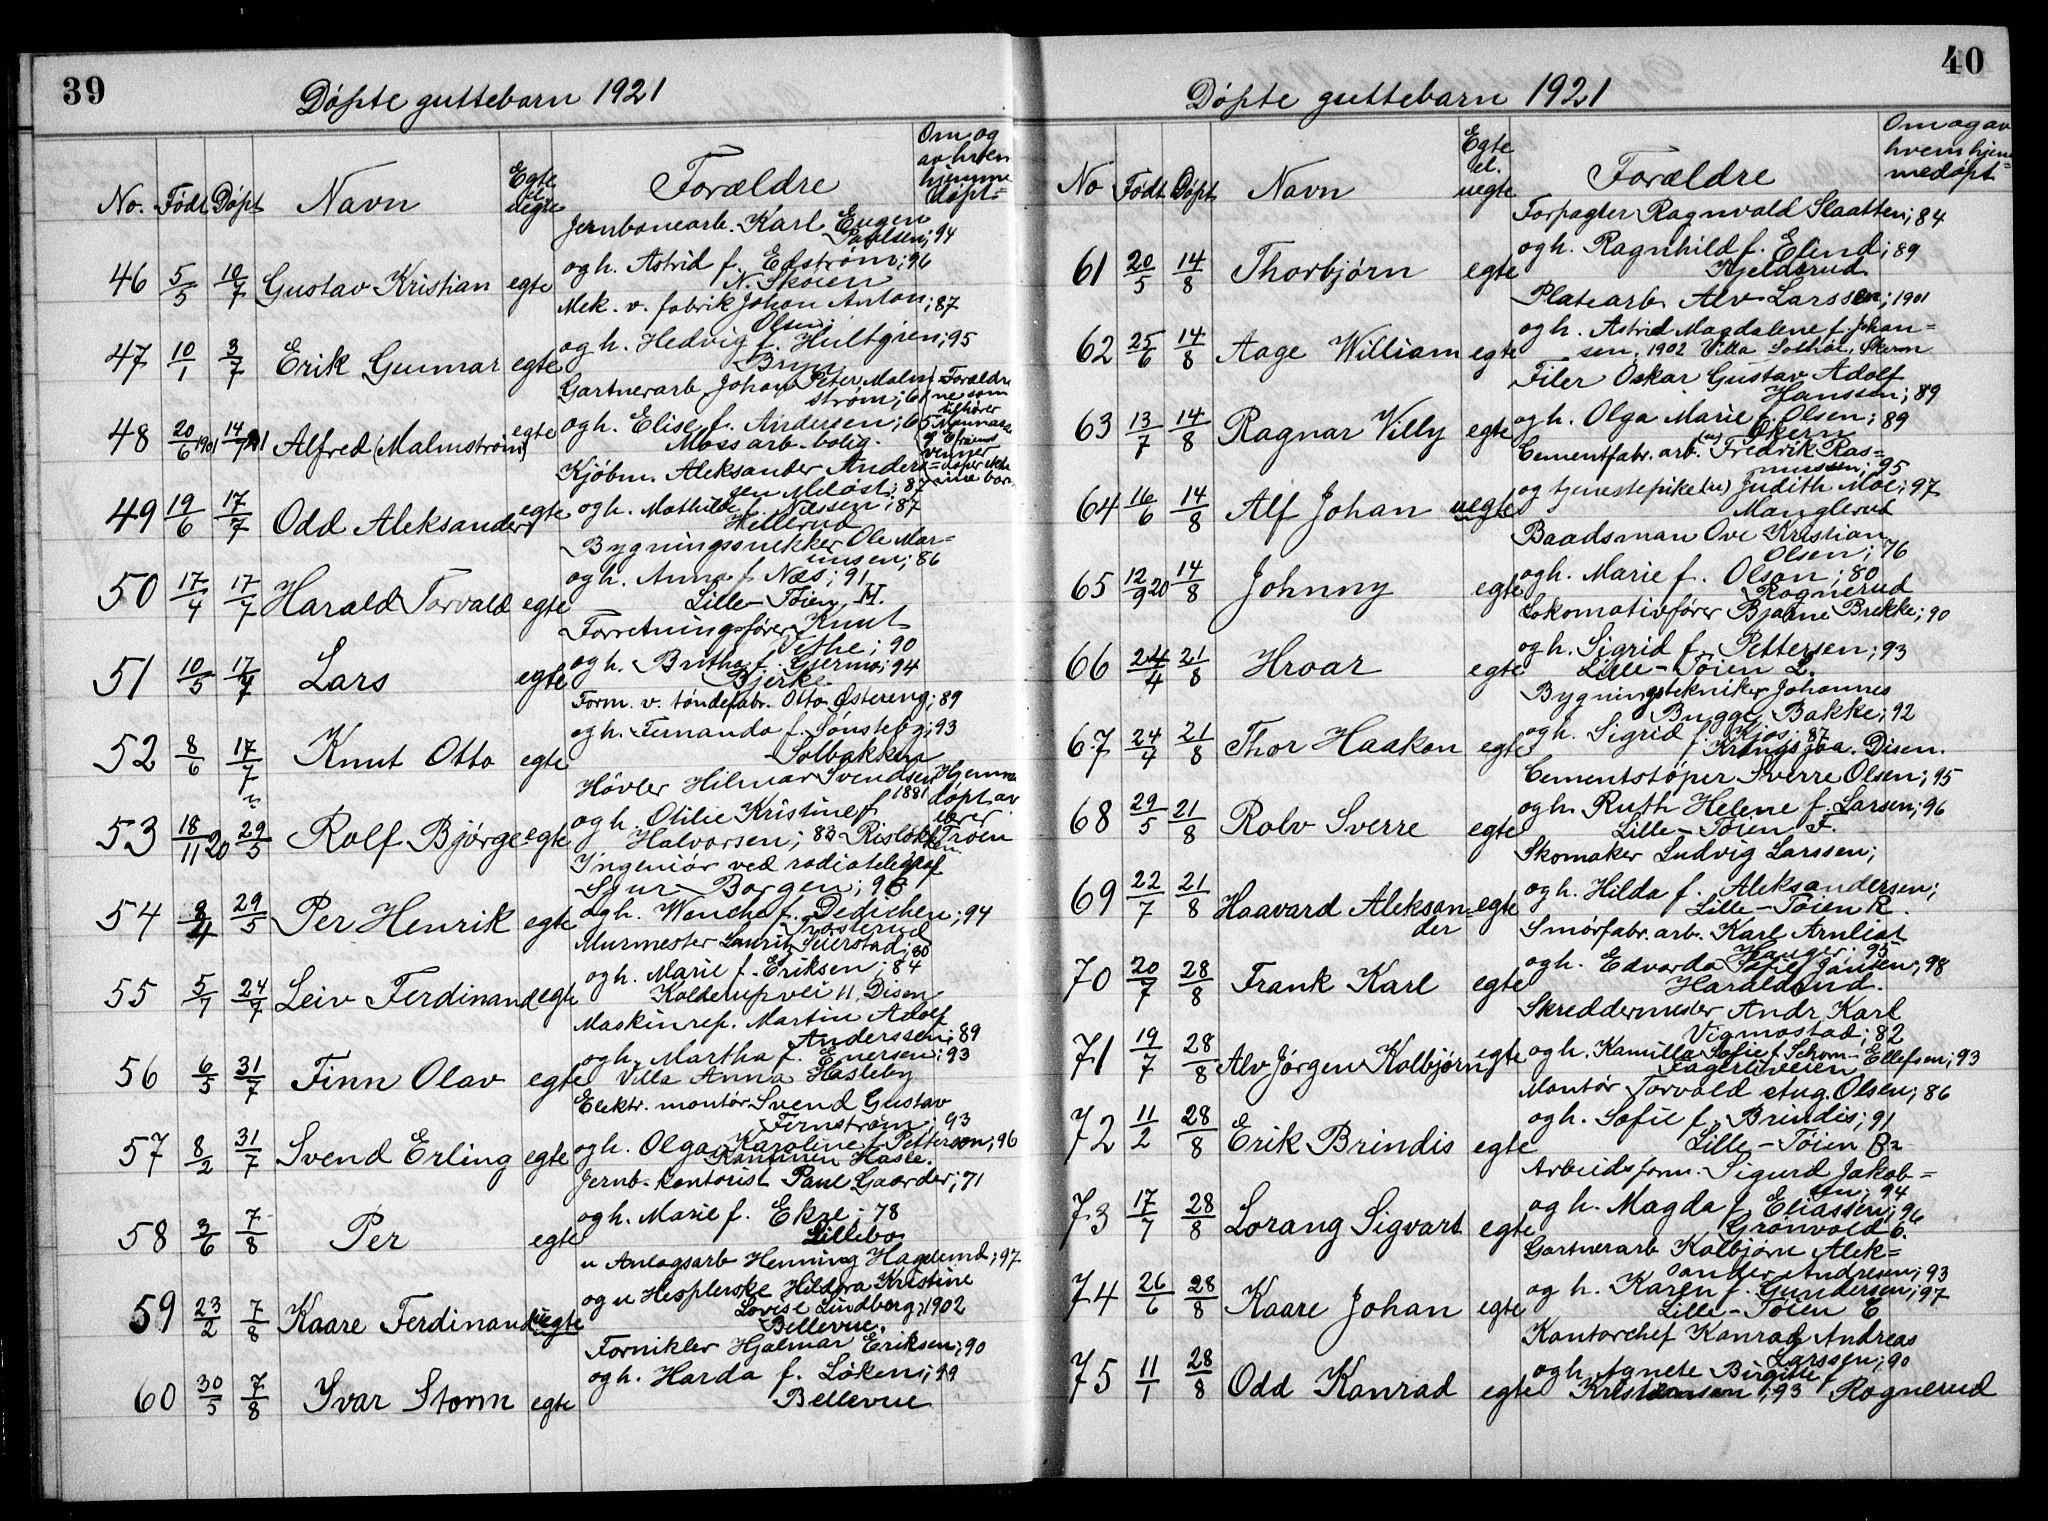 39
Døpte guttebarn 1921
No. Født Døpt Navn Egte el. uegte Forældre Om og av hvem hjemme døpt
Jernbanearb. Karl Eugen
Paulsen; 94
46 5/5 10/7 Gustav Kristian egte og h. Astrid f. Edstrøm; 96
N. Skøien
Mek. v. fabrik Johan Anton; 87
Olsen;
47 10/1 3/7 Erik Gunnar egte og h. Hedvig f. Hultgren; 95
Bryn
Gartnerarb. Johan Peter Malm
strøm; 61
48 20/6 1901 14/7 21 Alfred (Malmstrøm) egte og h. Elise f. Andersen; 65
Moss arb. bolig.
Forældre
ne som
tilhører
venner
døper ikke
sine barn
Kjøbm. Aleksander Anders=
sen Meløst; 87
49 19/6 17/7 Odd Aleksander egte og h. Mathilde f. Nilssen; 87
Hellerud
Bygningssnekker Ole Mar=
tinsen; 86
50 17/4 17/7 Harald Torvald egte og h. Anna f. Næs; 91
Lille-Tøien H.
Forretningsfører Knut
Vethe; 90
51 10/5 17/7 Lars egte og h. Britha f. Gjerme; 94
Bjerke
Form. v. tøndefabr. Otto Østereng; 89
52 8/6 17/7 Knut Otto egte og h. Fernanda f. Sønsteby; 93
Solbakken
Høvler Hilmar Svendsen 1881
53 18/11 20 29/5 Rolf Bjørge egte og h. Otilie Kristine f.
Halvorsen; 83 Risløkken
Hjemme
døpt av
elver
Troen
Ingeniør ved radiotelegraf
Sjur Borgen; 96
54 9/4 29/5 Per Henrik egte og h. Wenche f. Dedichen; 94
Trosterud
Murmester Lauritz Seierstad; 80
55 5/7 24/7 Leiv Ferdinand egte og h. Marie f. Eriksen; 84
Kolderupsvei 11 Disen
Maskinrep. Martin Adolf
Anderssen; 89
56 6/5 31/7 Finn Olav egte og h. Martha f. Enersen; 93
Villa Anna Hasleby
Elektr. montør Svend Gustav
Fernstrøm; 93
57 8/2 31/7 Svend Erling egte og h. Olga Karoline f. Petterson; 96
Kampnen Hasle.
Jernb. kontorist Paul Gaarder; 71
58 3/6 7/8 Per egte og h. Marie f. Ekre; 78
Lillebo
u Anlagsarb Henning Hagelund; 97
59 23/2 7/8 Kaare Ferdinand uegte og u Hesplerske Hildora Kristine
Lovise Lindberg; 1902
Bellevue.
Fornikler Hjalmar Eriksen; 90
60 30/5 7/8 Ivar Storm egte og h. Harda f. Løken; 99
Bellevue
40
Døpte guttebarn 1921
No Født Døpt Navn Egte el. uegte Forældre Om og av hvem hjem= medøpt
Forpagter Ragnvald Slaatten; 84
61 20/5 14/8 Thorbjørn egte og h. Ragnhild f. Elind; 89
Kjeldsrud
Platearb Alv Larssen; 1901
62 25/6 14/8 Aage William egte og h. Astrid Magdalene f. Johan=
sen. 1902 Villa Solhøi, Økern
Filer Oskar Gustav Adolf
Hanssen; 89
63 13/7 14/8 Ragnar Villy egte og h. Olga Marie f. Olsen; 89
Økern
Cementfabr. arb. (u) Fredrik Ras=
mussen; 95
64 16/6 14/8 Alf Johan uegte og tjenestepike (u) Judith Moe; 97
Manglerud
Baadsman Ove Kristian
Olsen; 76
65 12/9 20 14/8 Johnny egte og h. Marie f. Olson; 80
Rognerud
Lokomotivfører Bjarne Brekke; 90
66 24/4 21/8 Hroar egte og h. Sigrid f. Pettersen; 93
Lille-Tøien L.
Bygningstekniker Johannes
Bugge Bakke; 92
67 24/4 21/8 Thor Haakon egte og h. Sigrid f. Kjos; 87
Kringsjaa. Disen.
Cementstøper Sverre Olsen; 95
68 29/5 21/8 Rolv Sverre egte og h. Ruth Helene f. Larsen; 96
Lille-Tøien F.
Skomaker Ludvig Larssen;
69 22/7 21/8 Haavard Aleksan=
der egte og h. Hilda f. Aleksandersen;
Lille-Tøien R.
Smørfabr. arb. Karl Arnliot
Hauger; 95
70 20/7 28/8 Frank Karl egte og h. Edvarda Sofie Jansen; 98
Haraldsrud.
Skreddermester Andr. Karl
Vigmostad; 82
71 19/7 28/8 Alv Jørgen Kolbjørn egte og h. Kamilla Sofie f. Schom-Ellefsen; 93
Fagerliveien
Montør Torvald Aug. Olsen; 86
72 11/2 28/8 Erik Brindis egte og h. Sofie f. Brindis; 91
Lille-Tøien B2
Arbeidsform. Sigurd Jakob=
sen; 94
73 17/7 28/8 Lorang Sigvart egte og h. Magda f. Eliassen; 96
Grønvold 6.
Gartnerarb Kolbjørn Alek=
sander Andresen; 93
74 26/6 28/8 Kaare Johan egte og h. Karen f. Gundersen; 97
Lille-Tøien E
Kontorchef Konrad Andreas
Larssen; 90
75 11/1 28/8 Odd Konrad egte og h. Agnete Birgitte f
Kristiansen; 93 Rognerud